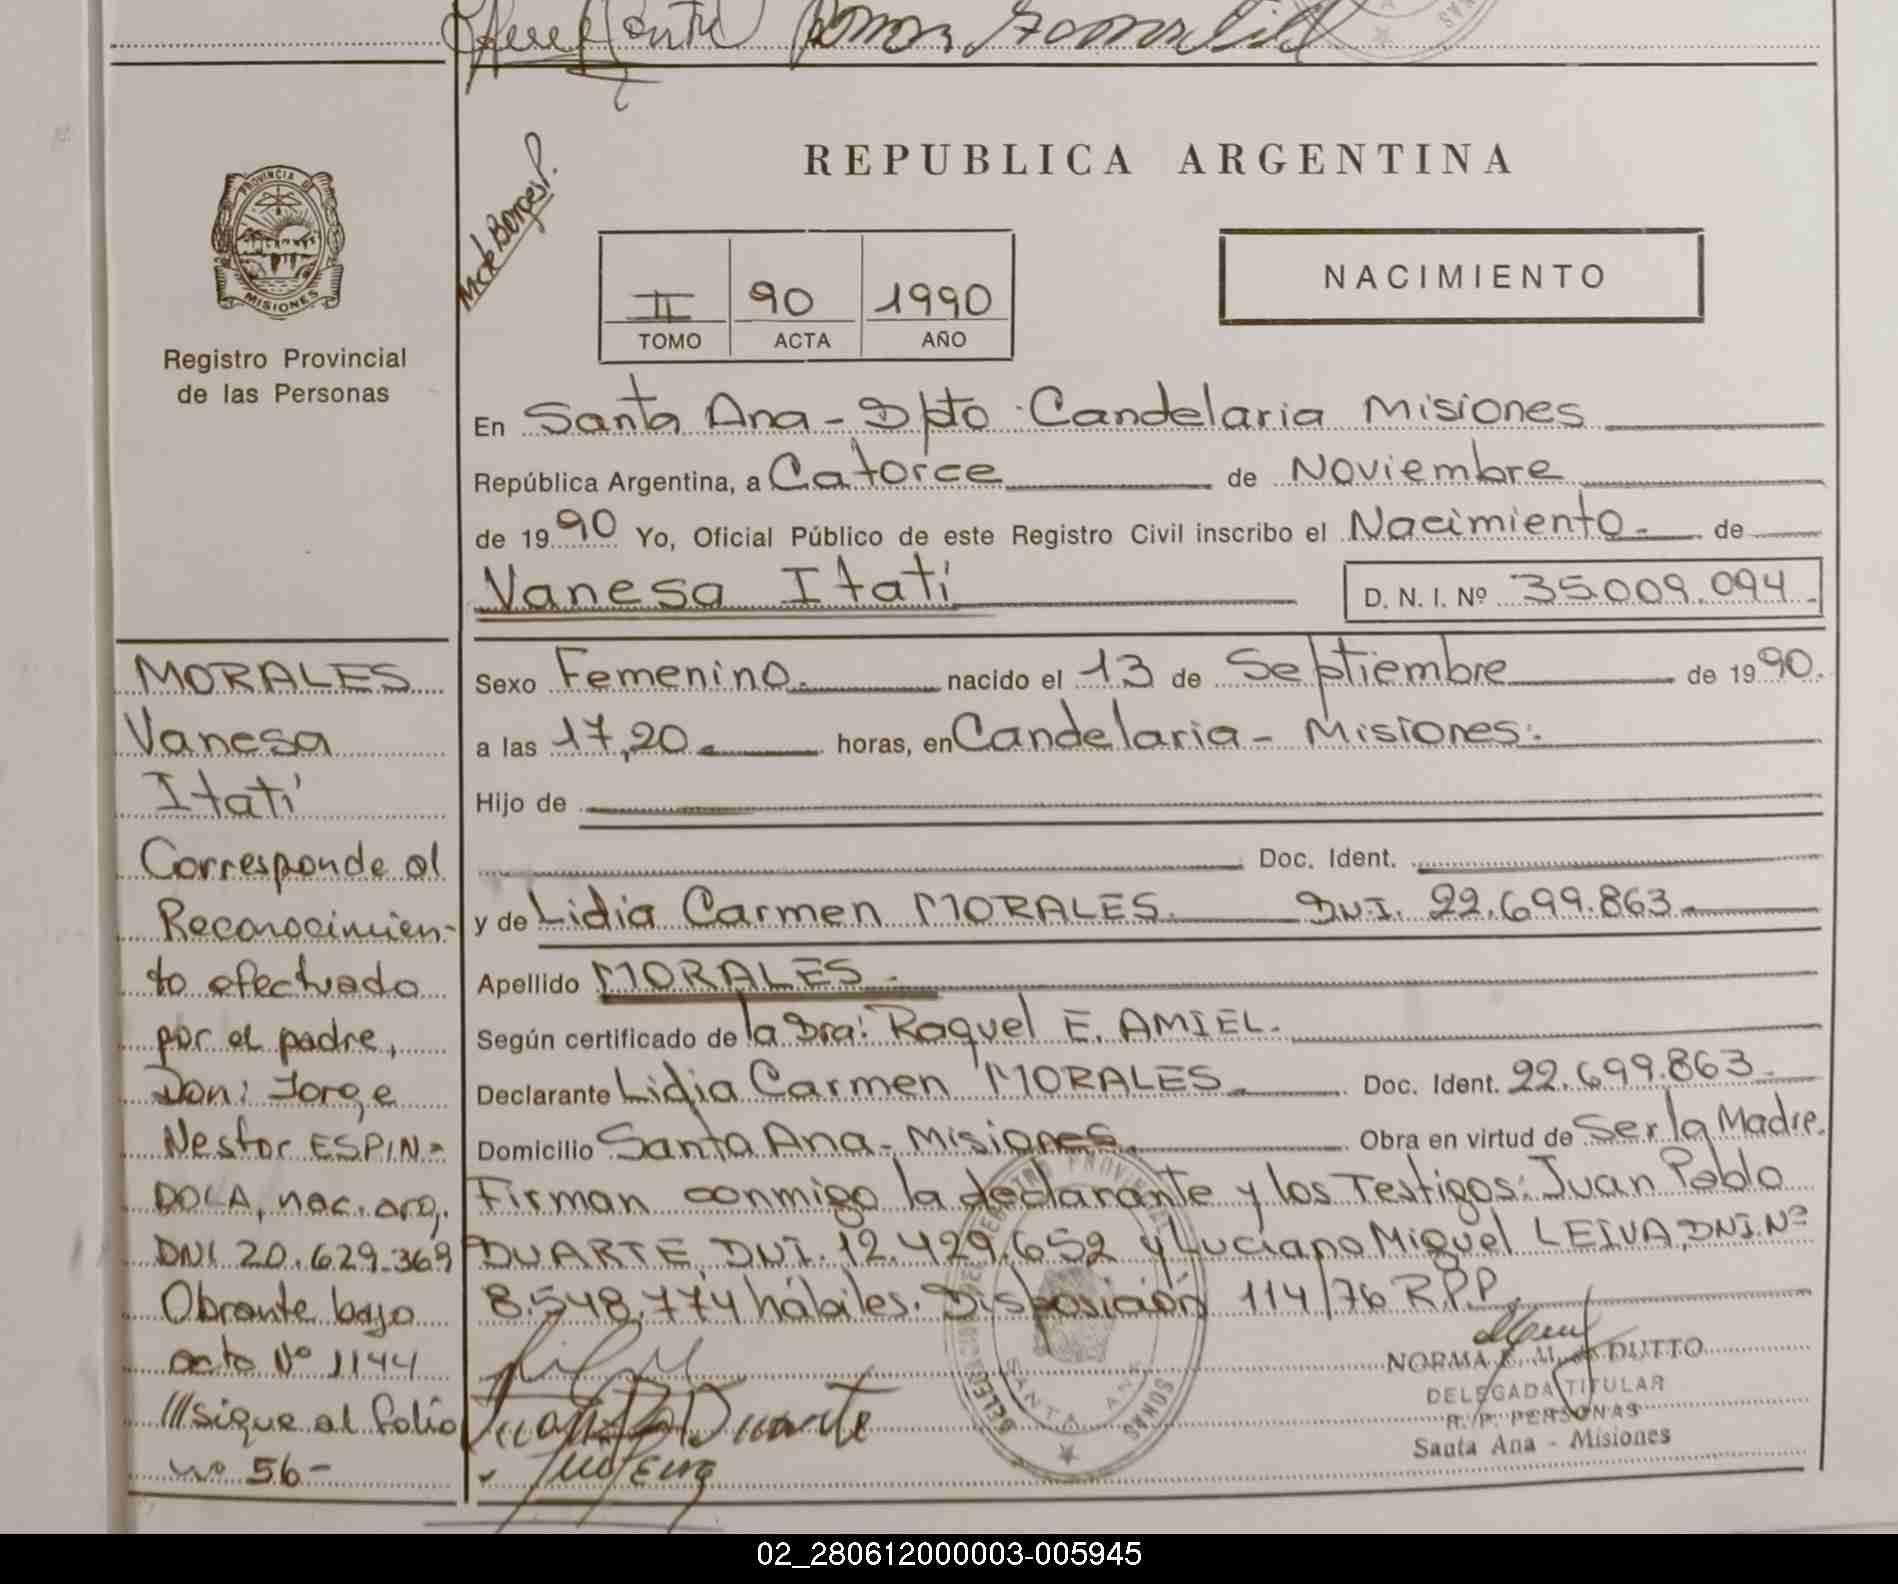 PROVINCIA DE
MISIONES
Registro Provincial
de las Personas
REPUBLICA ARGENTINA
II 90 1990
TOMO ACTA AÑO
NACIMIENTO
En Santa Ana - Dpto Candelaria Misiones
República Argentina, a Catorce de Noviembre
de 1990 Yo, Oficial Público de este Registro Civil inscribo el Nacimiento. de
Vanesa Itatí D. N. I. Nº 35.009.094.
MORALES
Vanesa
Itatí
Corresponde al
Reconocimien-
to efectuado
por el padre,
Don: Jorge
Nestor ESPIN=
DOLA, nac. arg.
DNI 20.629.369
Obrante bajo
acta Nº 1144
///sigue al folio
nº 56-
Sexo Femenino. nacido el 13 de Septiembre de 1990.
a las 17,20. horas, en Candelaria - Misiones.
Hijo de
Doc. Ident.
y de Lidia Carmen MORALES. DNI. 22.699.863.
Apellido MORALES.
Según certificado de la Dra: Raquel E. AMIEL.
Declarante Lidia Carmen MORALES. Doc. Ident. 22.699.863.
Domicilio Santa Ana - Misiones. Obra en virtud de Ser la Madre.
Firman conmigo la declarante y los Testigos: Juan Pablo
DUARTE, DNI. 12.429.652 y Luciano Miguel LEIVA, DNI. Nº
8.548.774 hábiles. Disposición 114/76 R.P.P.
Juan P Duarte
SANTA ANA
NORMA DUTTO
DELEGADA TITULAR
R. P. PERSONAS
Santa Ana - Misiones
02_280612000003-005945